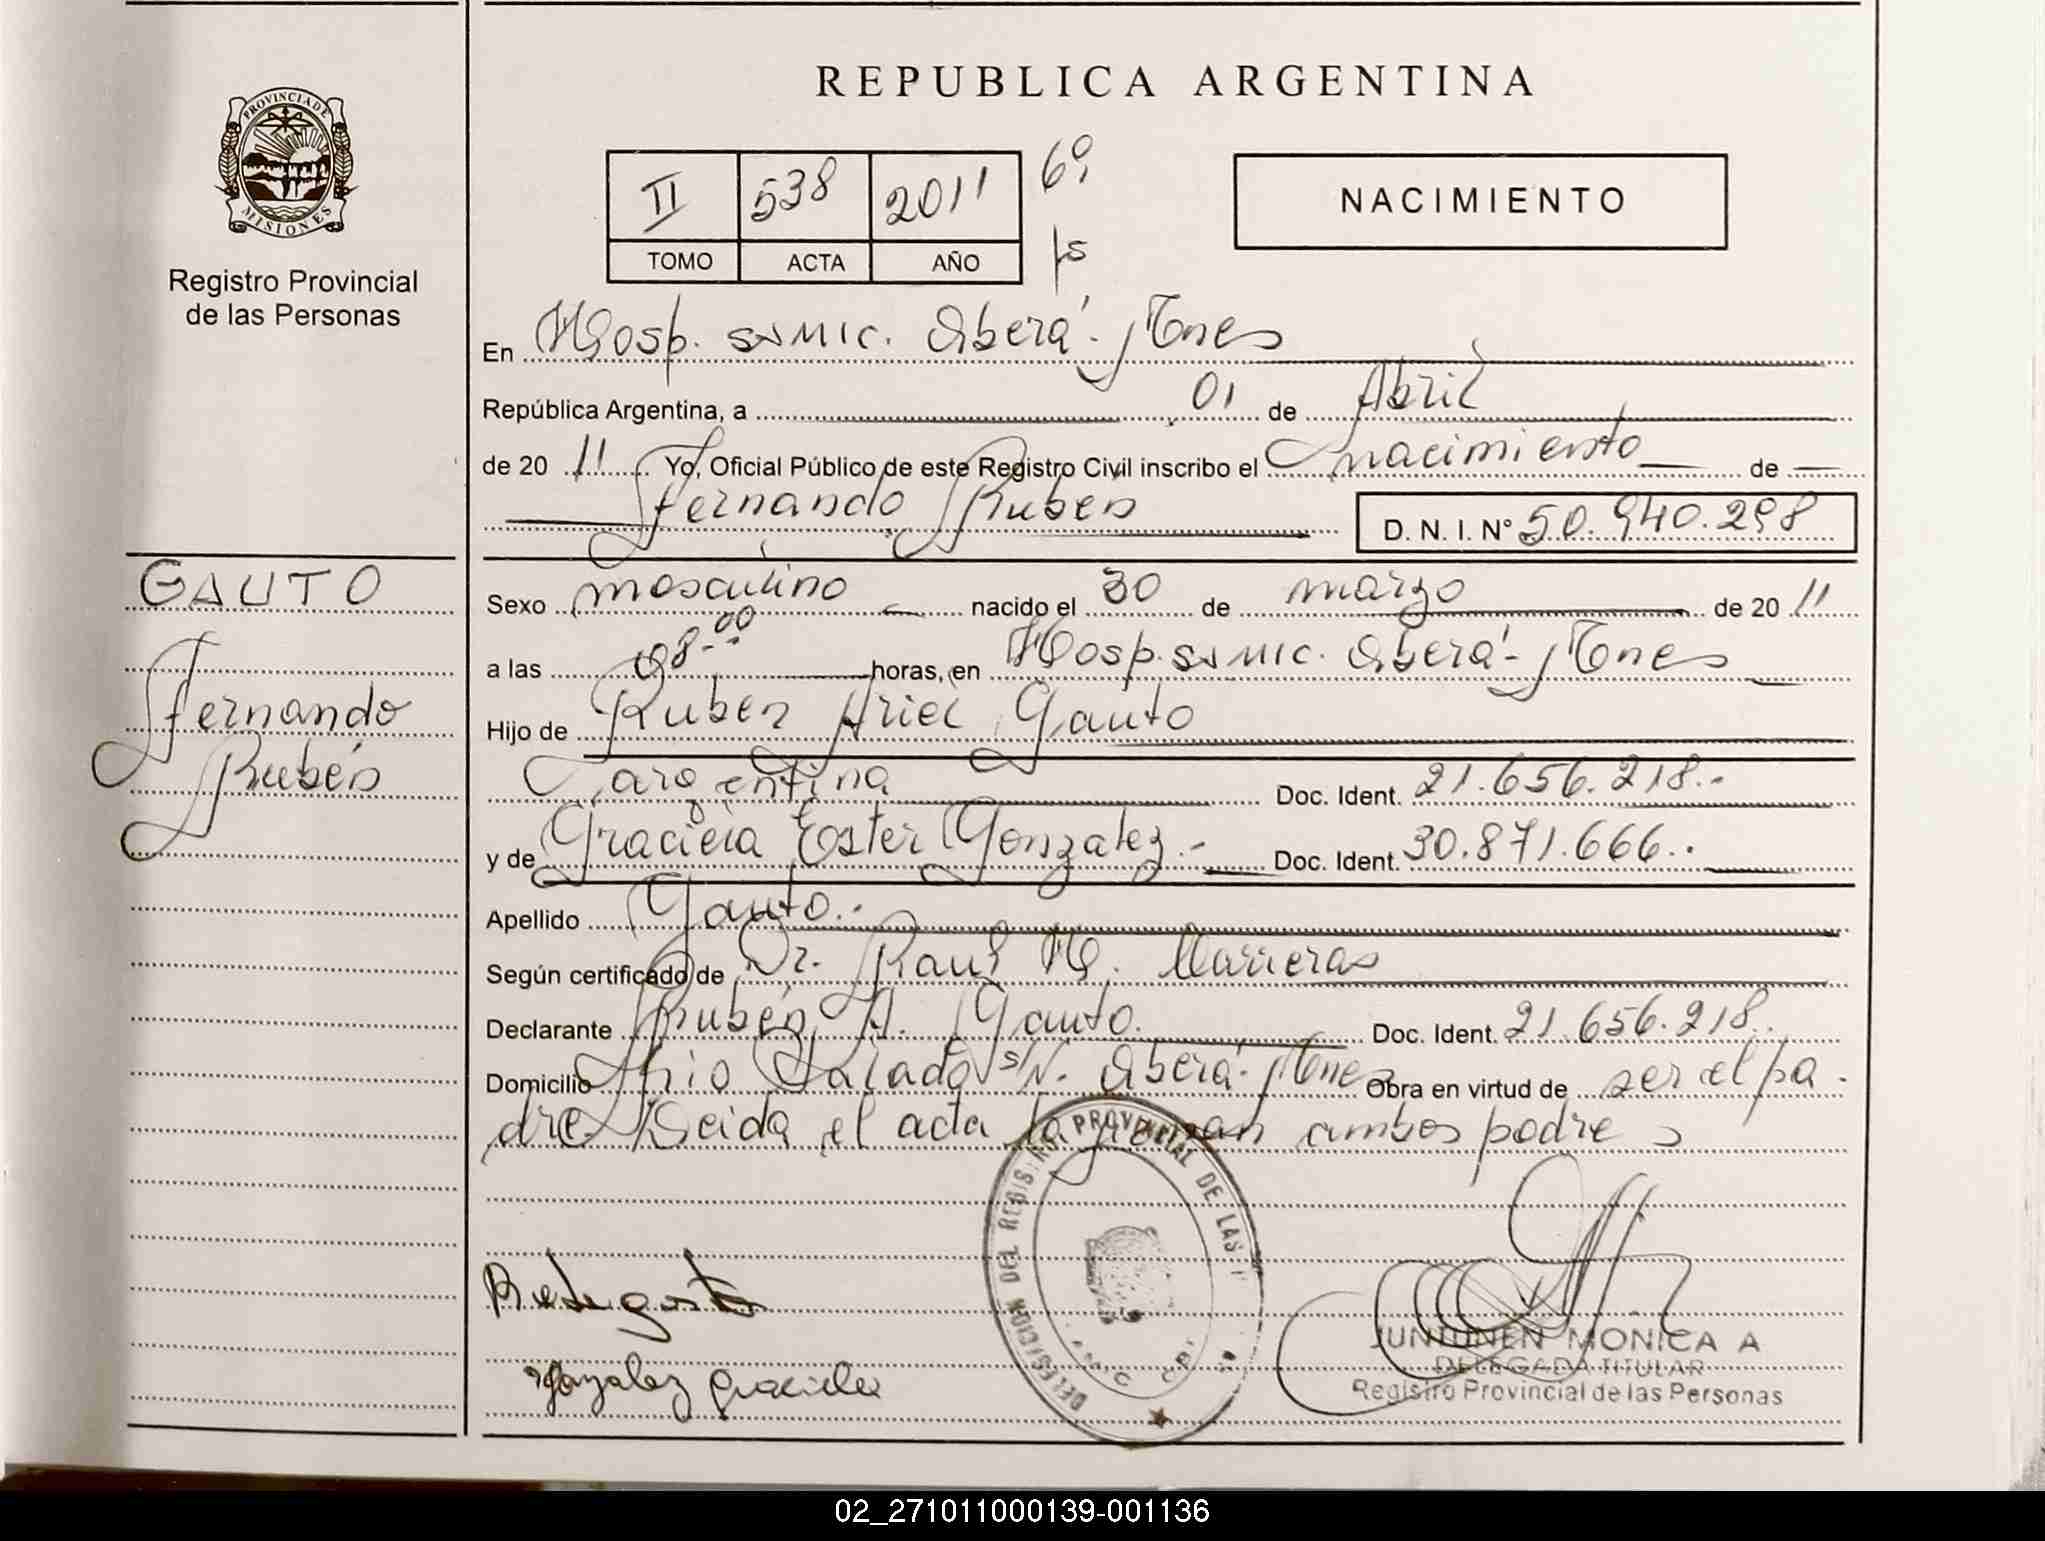 REPUBLICA ARGENTINA
PROVINCIA DE MISIONES
Registro Provincial
de las Personas
II 538 2011 6º
TOMO ACTA AÑO fs
NACIMIENTO
En Hosp. SAMIC. Oberá - Mnes
República Argentina, a 01 de Abril
de 20 11 Yo, Oficial Público de este Registro Civil inscribo el nacimiento de
Fernando Rubén D. N. I. Nº 50.940.298
GAUTO
Fernando
Rubén
Sexo masculino nacido el 30 de marzo de 20 11
a las 08.-00 horas, en Hosp. SAMIC. Oberá - Mnes
Hijo de Rubén Ariel Gauto
argentina Doc. Ident. 21.656.218.-
y de Graciela Ester Gonzalez.- Doc. Ident. 30.871.666.-
Apellido Gauto.-
Según certificado de Dr. Raul H.
Declarante Rubén A. Gauto. Doc. Ident. 21.656.218.
Domicilio Rio Salado s/N. Oberá - Mnes Obra en virtud de ser el pa
dre Leida el acta la firman ambos padres
DELEGACION DEL REGISTRO PROVINCIAL DE LAS P
gonzalez graciela
JUNTUNEN MONICA A
DELEGADA TITULAR
Registro Provincial de las Personas
02_271011000139-001136